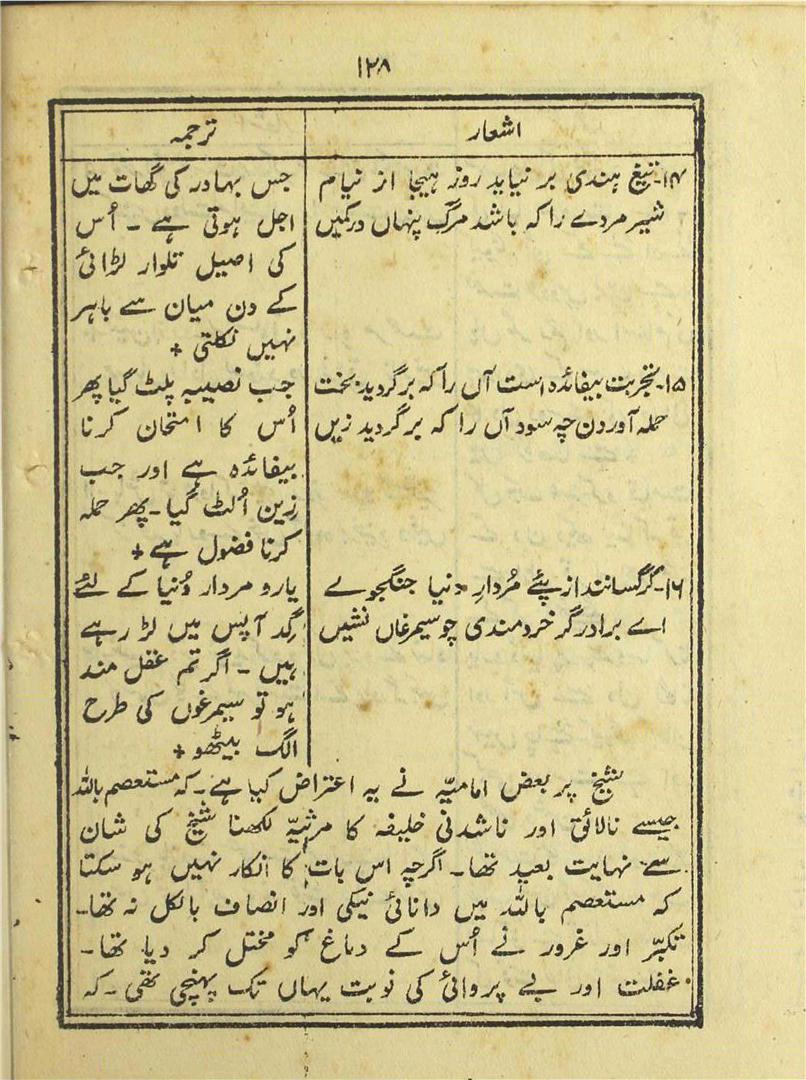 ۱۲۸
اشعار
ترجمہ
۱۴۔ تیغ ہندی بر نیاید روز ہیجا از نیام
شیر مردے را کہ باشد مرگ پنہاں در کمیں
جس بہادر کی گھات میں
اجل ہوتی ہے ۔ اُس
کی اصیل تلوار لڑائی
کے دن میان سے باہر
نہیں نکلتی +
۱۵۔ تجربت بیفائدہ است آں را کہ بر گردید بخت
حملہ آوردن چہ سود آں را کہ بر گردید زیں
جب نصیبہ پلٹ گیا پھر
اُس کا امتحان کرنا
بیفائدہ ہے اور جب
زین اُلٹ گیا ۔ پھر حملہ
کرنا فضول ہے +
۱۶۔ کرگسانند از پئے مُردارِ دنیا جنگجوے
اے برادر گر خردمندی چو سیمرغاں نشیں
یارو مردار دُنیا کے لئے
گِد آپس میں لڑ رہے
ہیں ۔ اگر تم عقل مند
ہو تو سیمرغوں کی طرح
الگ بیٹھو +
شیخ پر بعض امامیّہ نے یہ اعتراض کیا ہے ۔ کہ مستعصم باللہ
جیسے نالائق اور ناشدنی خلیفہ کا مرثیّہ لکھنا شیخ کی شان
سے نہایت بعید تھا ۔ اگرچہ اس بات کا انکار نہیں ہو سکتا
کہ مستعصم باللہ میں دانائی نیکی اور انصاف بالکل نہ تھا ۔
تکبّر اور غرور نے اُس کے دماغ کو مختل کر دیا تھا ۔
غفلت اور بے پروائی کی نوبت یہاں تک پہنچی تھی ۔ کہ